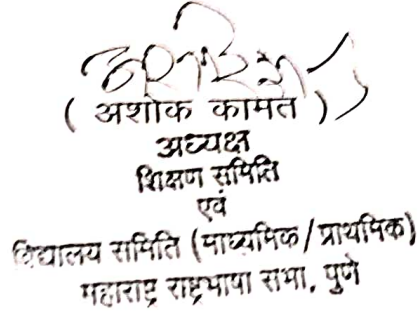 ( अशोक कामत )
अध्यक्ष
शिक्षण समिति
एवं
विद्यालय समिति (माध्यमिक/प्राथमिक)
महाराष्ट्र राष्ट्रभाषा सभा, पुणे